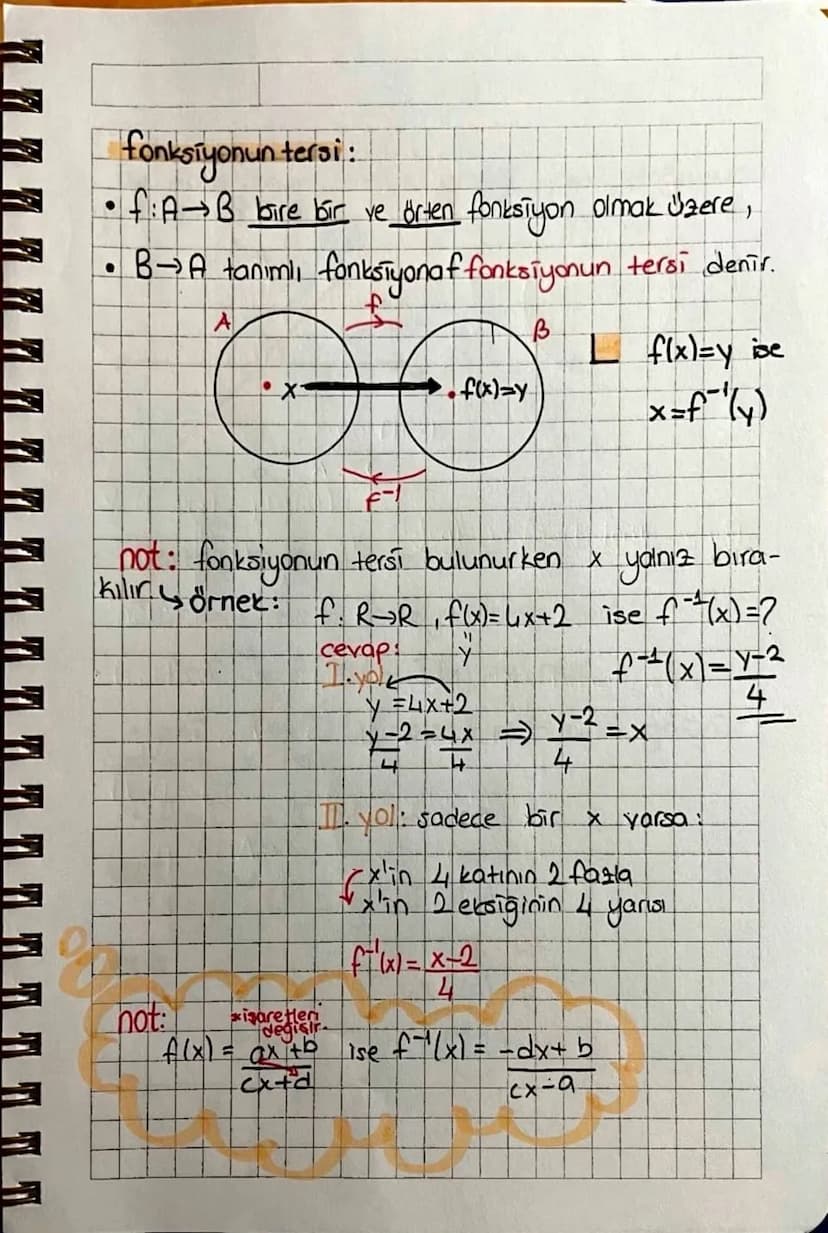 fonksiyonun tersi:
• f:A→B bire bir ve örten fonksiyon olmak üzere,
• B→A tanımlı fonksiyona f fonksiyonun tersi denir.
f
A
B
• x
• f(x)=y
f(x)=y ise
x=f⁻¹(y)
f⁻¹
not: fonksiyonun tersi bulunurken x yalnız bıra-
kılır.
↳ örnek: f: R→R, f(x)=4x+2 ise f⁻¹(x)=?
cevap: y
f⁻¹(x)=y-2/4
I. yol
y=4x+2
y-2/4=4x/4 ⇒ y-2/4=x
II. yol: sadece bir x varsa:
x'in 4 katının 2 fazla
x'in 2 eksiğinin 4 yarısı
f⁻¹(x)=x-2/4
not:
*işaretleri
değişir.
f(x)=ax+b/cx+d ise f⁻¹(x)=-dx+b/cx-a